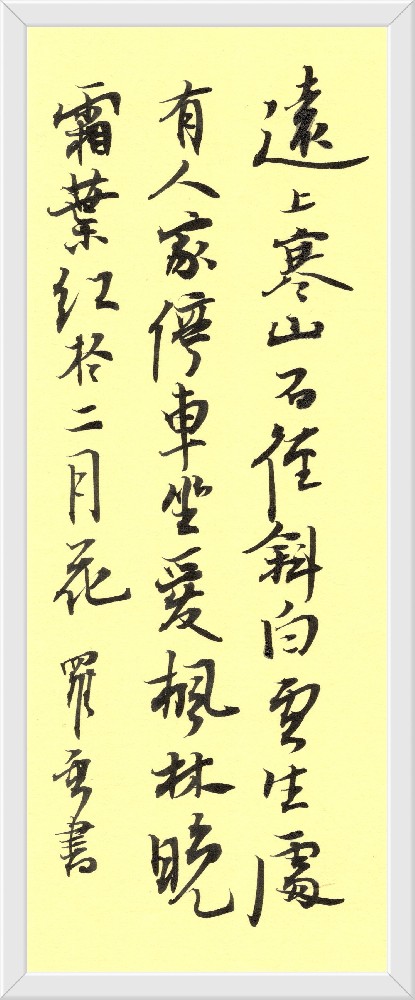 遠上寒山石徑斜白雲生處
有人家停車坐愛楓林晚
霜葉紅於二月花 羅雲書